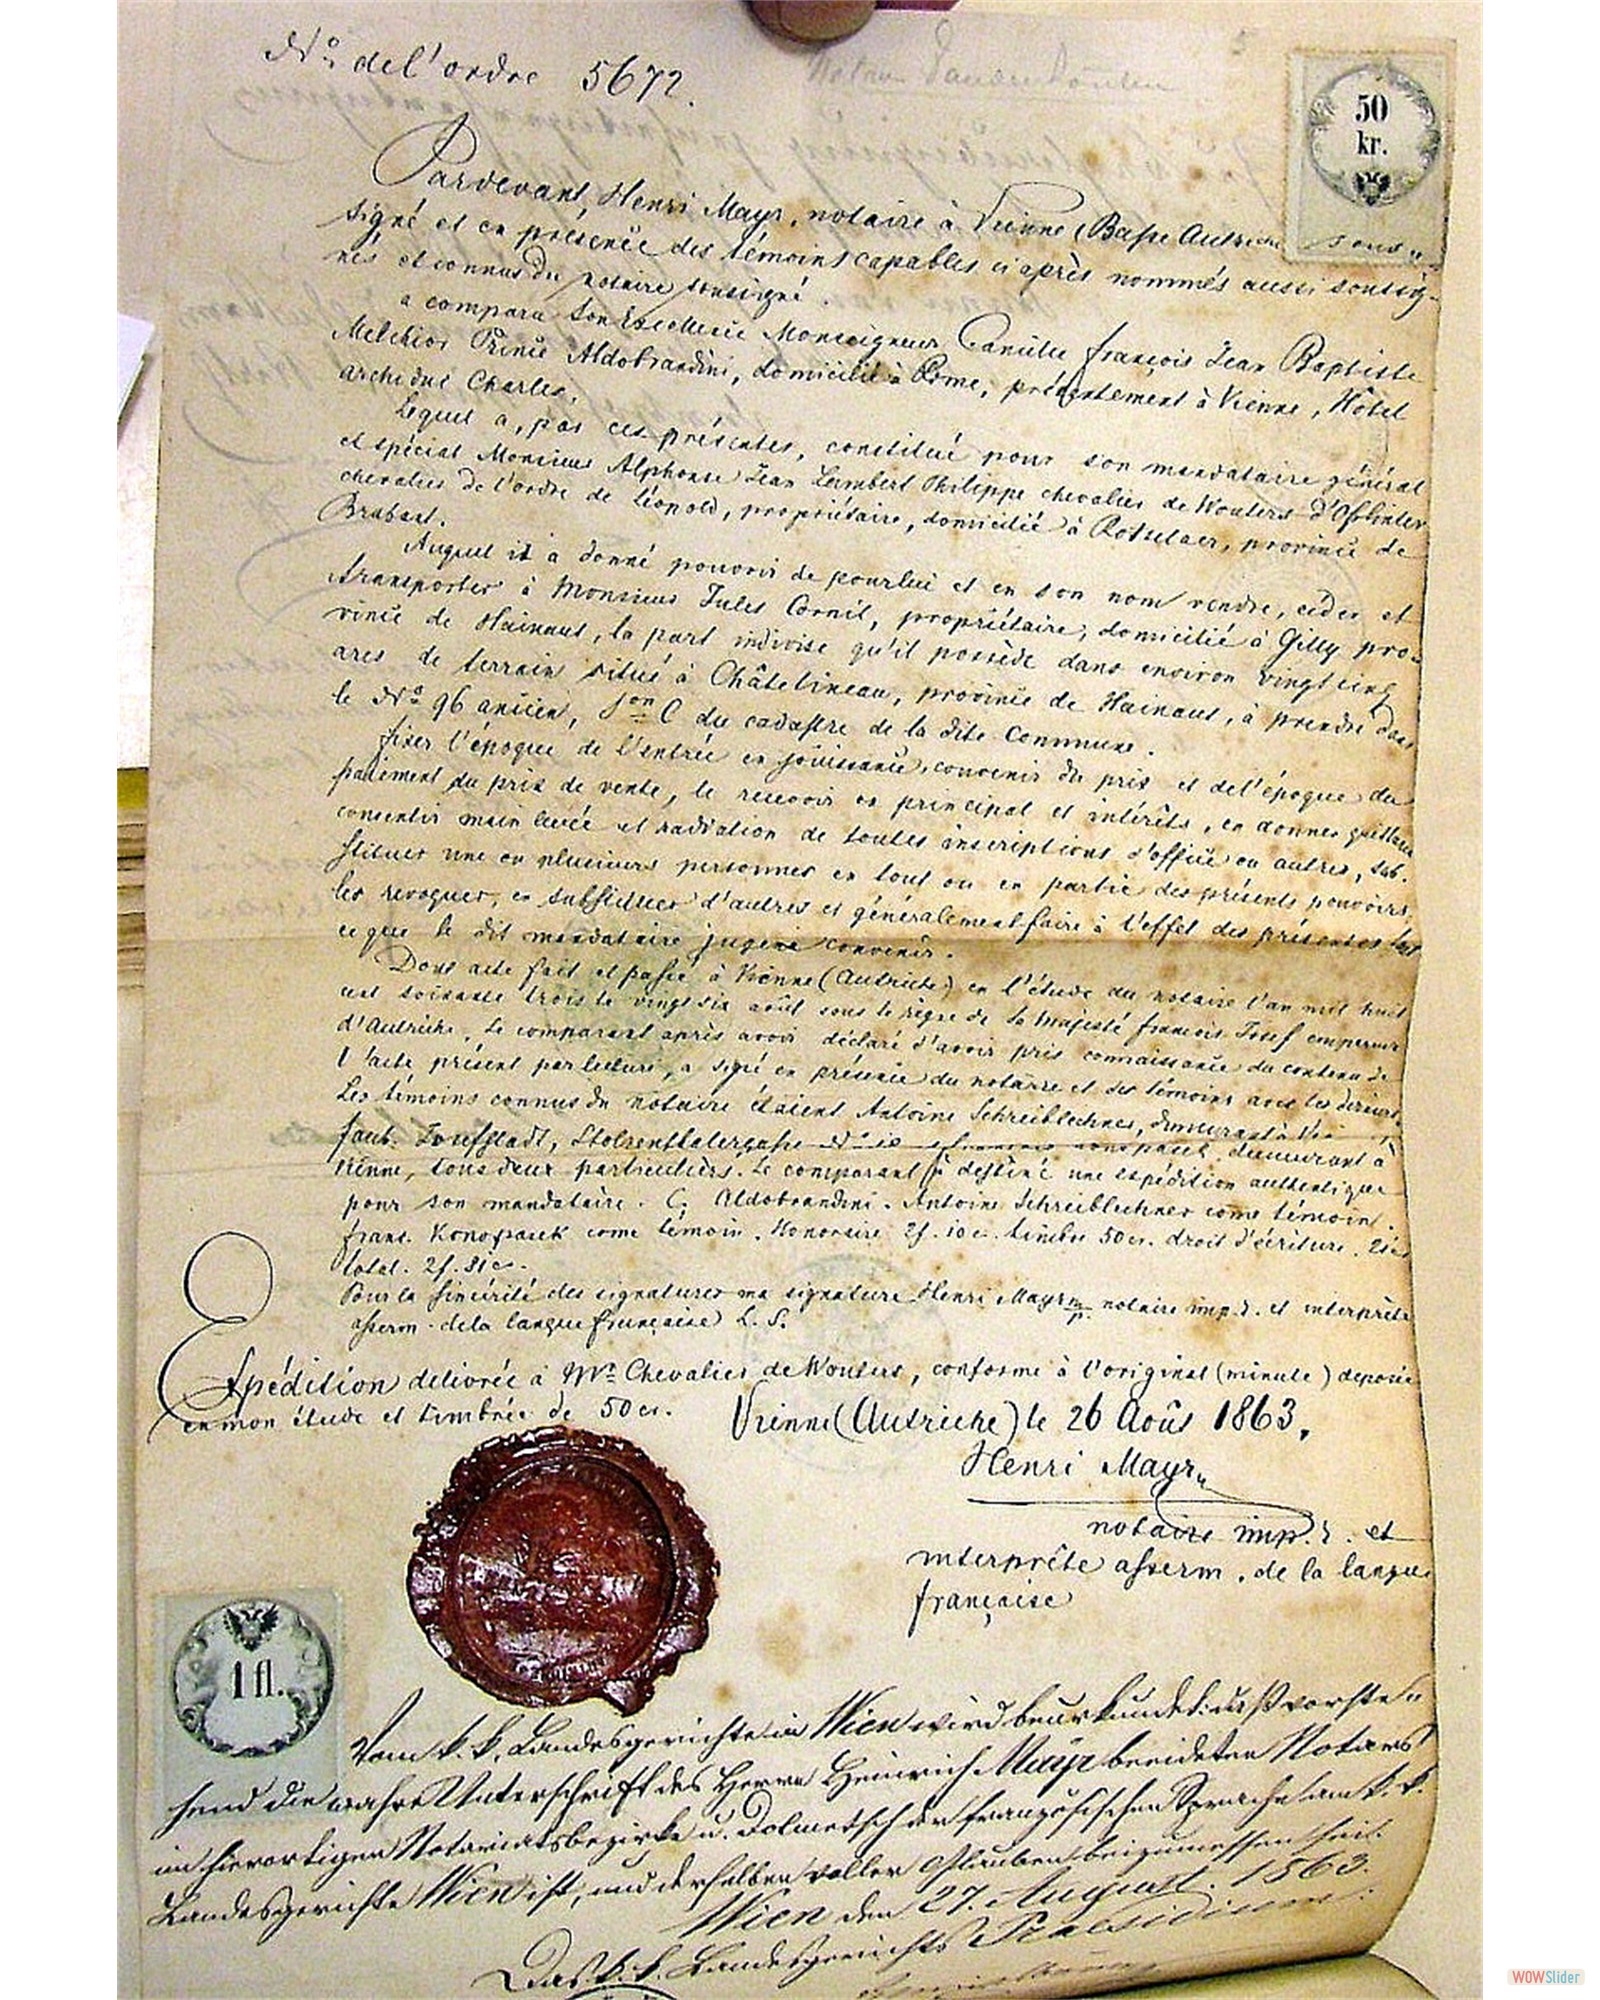 No. de l'ordre 5672.
50
kr.
Pardevant, Henri Mayr, notaire à Vienne (Basse Autriche sous„
signé et en présence des témoins capables ci après nommés aussi soussig-
nés et connus du notaire soussigné
a comparu Son Excellence Monseigneur Camille françois Jean Baptiste
Melchior Prince Aldobrandini, domicilié à Rome, présentement à Vienne, Hôtel
archiduc Charles,
Lequel a, par ces présentes, constitué pour son mandataire général
et spécial Monsieur Alphonse Jean Lambert Philippe chevalier de Wouters d'Oplinter
chevalier de l'ordre de Léopold, propriétaire, domicilié à Rotselaer, province de
Brabant.
Auquel il a donné pouvoir de pourlui et en son nom vendre, céder et
transporter à Monsieur Jules Cornil, propriétaire, domicilié à Gilly pro-
vince de Hainaut, la part indivise qu'il possède dans environ vingt cinq
ares de terrain situé à Châtelineau, province de Hainaut, à prendre dans
le No 96 ancien, Son C du cadastre de la dite Commune.
fixer l'époque de l'entrée en jouissance, convenir du prix et de l'époque du
paiement du prix de vente, le recevoir en principal et intérêts, en donner quittance
consentir main levée et radiation de toutes inscriptions d'office ou autres, sub-
stituer une ou plusieurs personnes en tout ou en partie des présents pouvoirs,
les revoquer, en substituer d'autres et généralement faire à l'effet des présentes tout
ce que le dit mandataire jugera convenir.
Dont acte fait et passé à Vienne (Autriche) en l'étude du notaire l'an mil huit
cent soixante trois le vingt six août sous le règne de Sa Majesté françois Josef empereur
d'Autriche. Le comparant après avoir déclaré d'avoir pris connaissance du contenu de
l'acte présent par lecture, a signé en présence du notaire et des témoins avec les derniers.
Les témoins connus du notaire étaient Antoine Schreiblechner, demeurant à
faub. Josefstadt, No 10 demeurant à
Vienne, tous deux particuliers. Le comparant a destiné une expédition authentique
pour son mandataire. C. Aldobrandini. Antoine Schreiblechner come témoin.
franc. Konopasek come témoin. Honoraire 2f. 10c. timbre 50cr. droit d'écriture. 21cr
total. 2f. 81cr.
Pour la sincérité des signatures ma signature Henri Mayr mp. notaire imp.r. et interprète
asserm. de la langue française L. S.
Expédition délivrée à Mr. Chevalier de Wouters, conforme à l'original (minute) deposée
en mon étude et timbrée de 50 cr.
Vienne (Autriche) le 26 Août 1863.
Henri Mayr
notaire imp. r. et
interprête asserm. de la langue
française
1 fl.
Vom k. k. Landesgerichte in Wien wird beurkundet: daß vorste-
hend die wahre Unterschrift des Herrn Heinrich Mayr beeideten Notars
im hierortigen Notariatsbezirke u. Dolmetsch der französischen Sprache am k. k.
Landesgerichte Wien ist, und derselben voller Glauben beizumessen sei.
Wien den 27. August. 1863.
Das k. k. Landesgerichts Praesidium.
WOWSlider